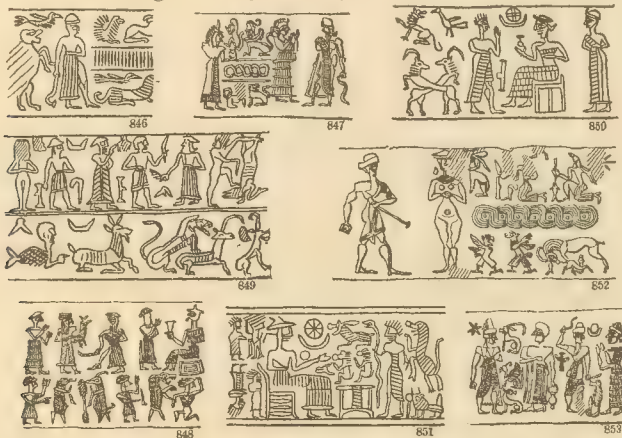 846
847
850
849
852
848
851
853